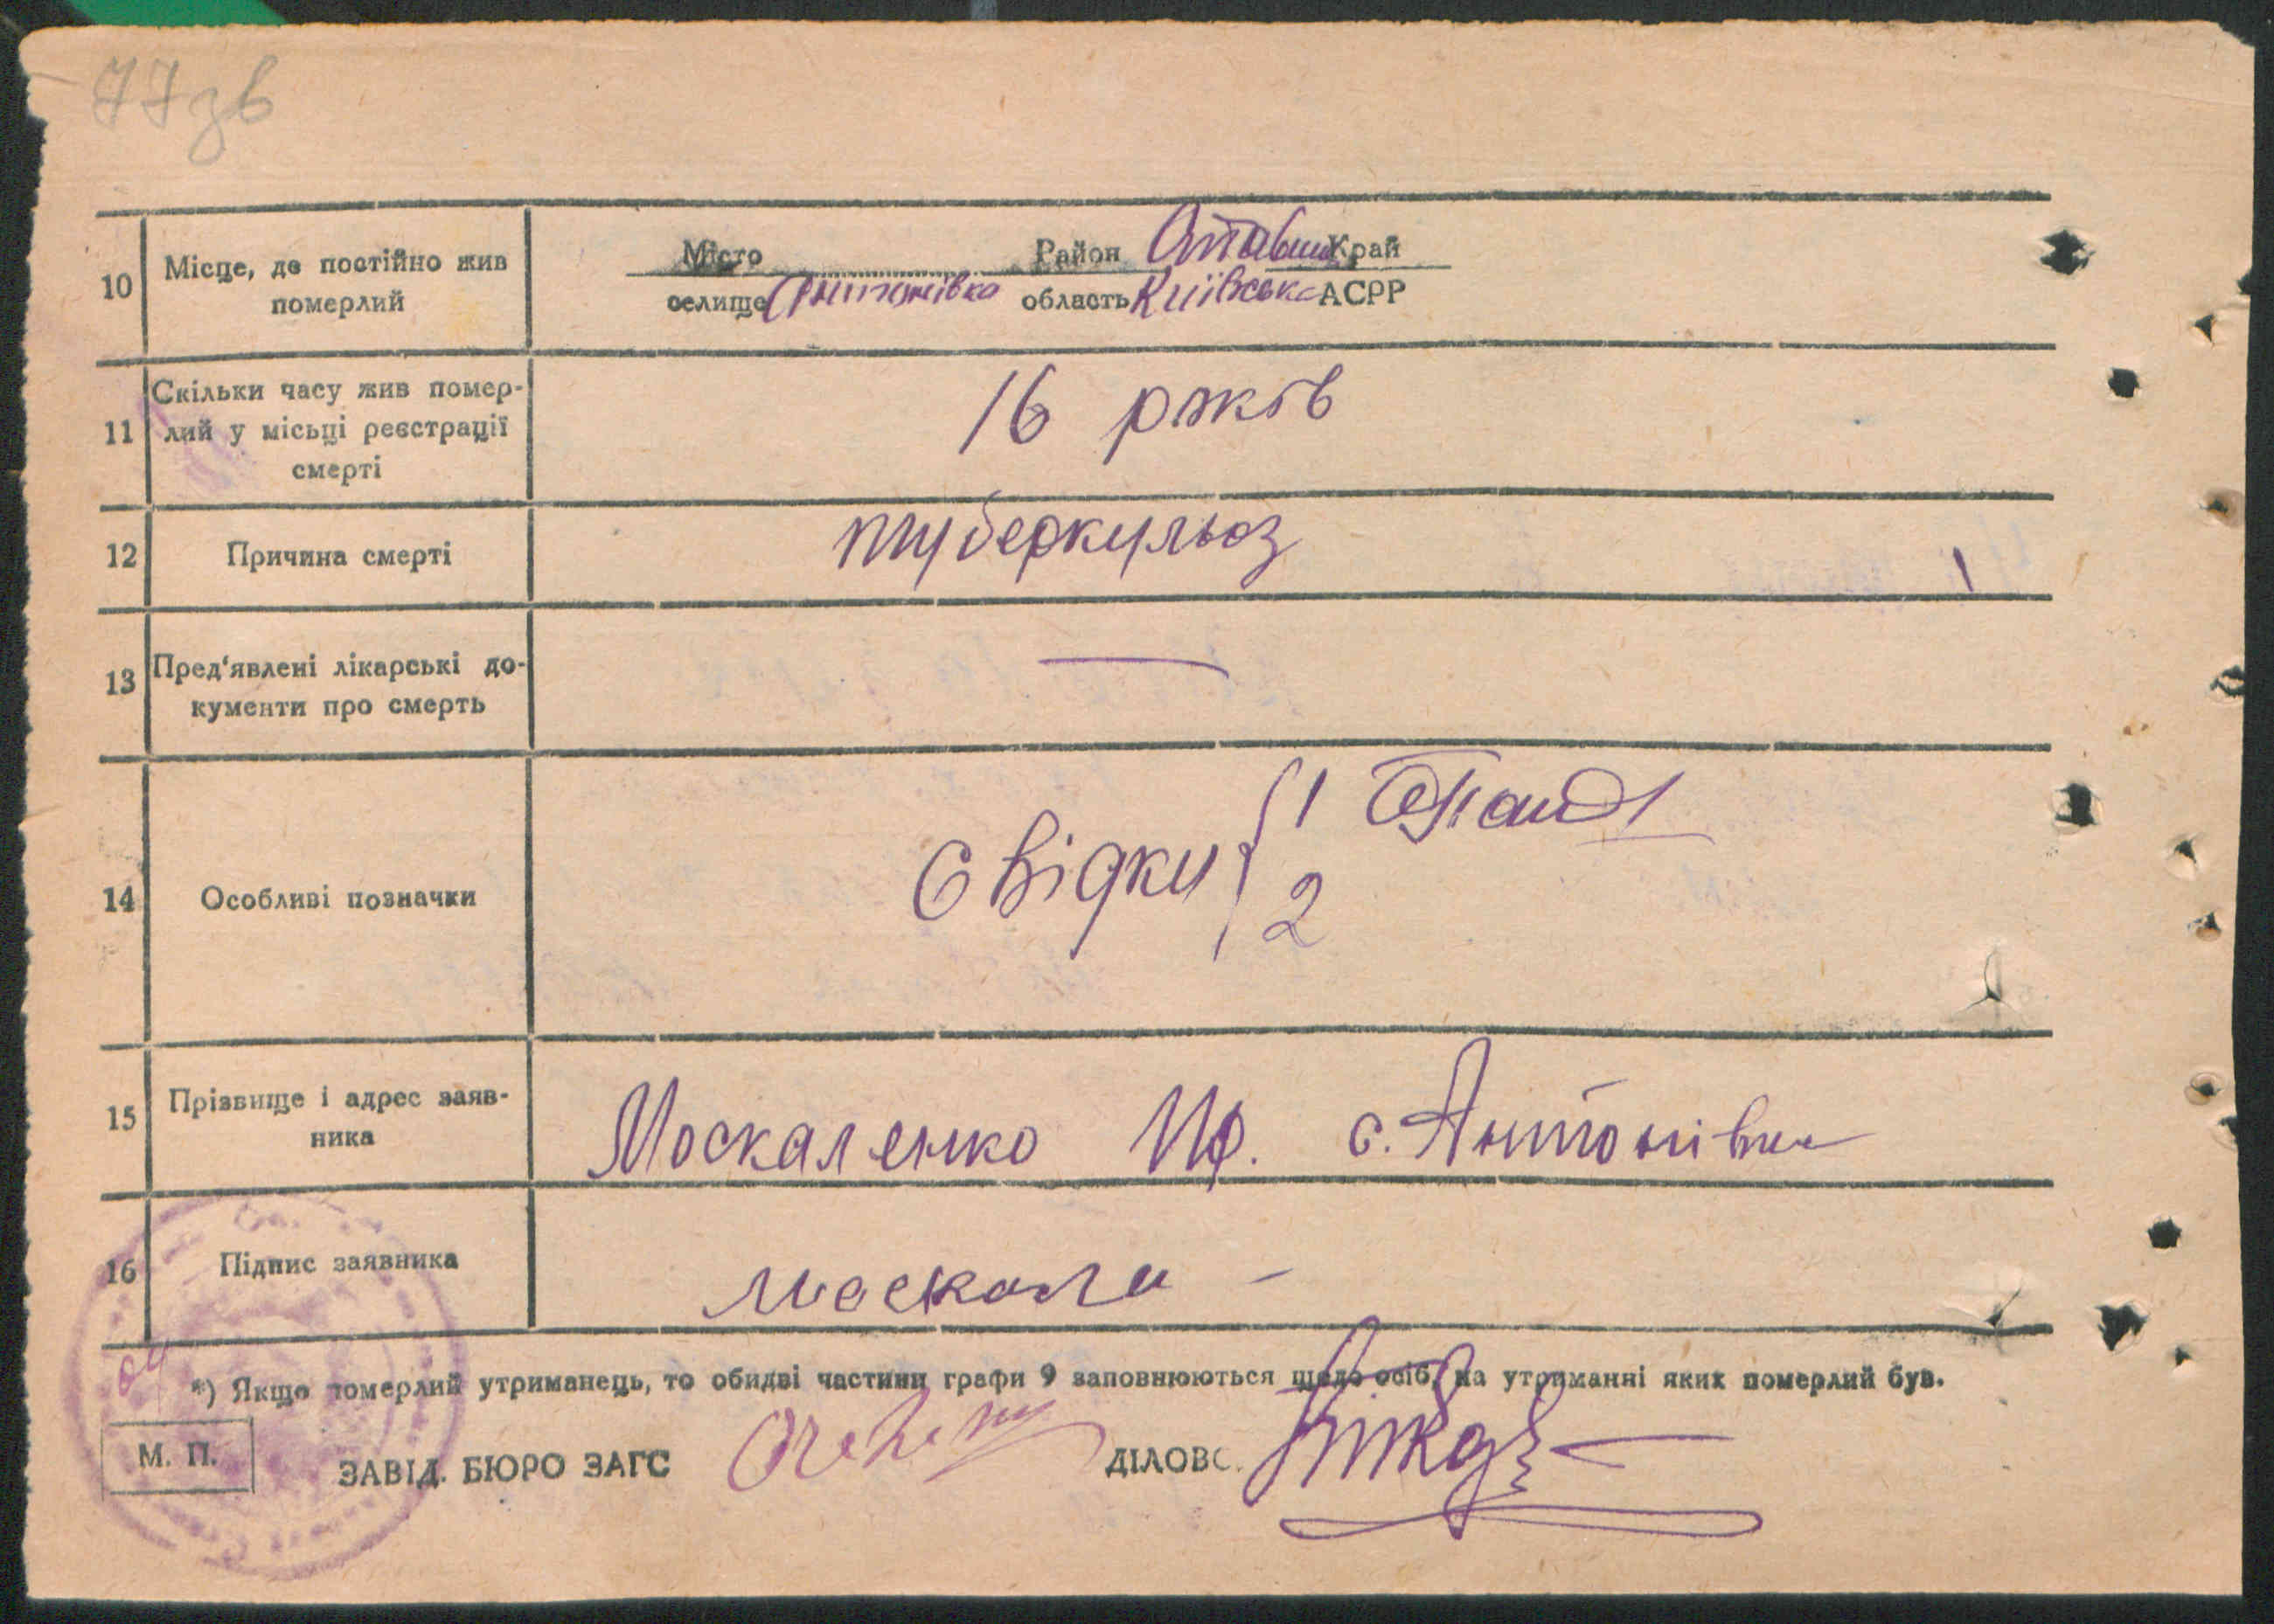 77зв
10 Місце, де постійно жив померлий
Місто Район Ставищ Край
селище Антонівка область Київська АСРР
11 Скільки часу жив помер-
лий у місьці реєстрації
смерті
16 років
12 Причина смерті туберкульоз 1
13 Пред'явлені лікарські до-
кументи про смерть —
14 Особливі позначки Свідки { 1
2
15 Прізвище і адрес заяв-
ника
Москаленко Пр. с. Антонівка
16 Підпис заявника Москале -
*) Якщо померлий утриманець, то обидві частини графи 9 заповнюються щодо осіб, на утриманні яких померлий був.
М. П. ЗАВІД. БЮРО ЗАГС ДІЛОВС.